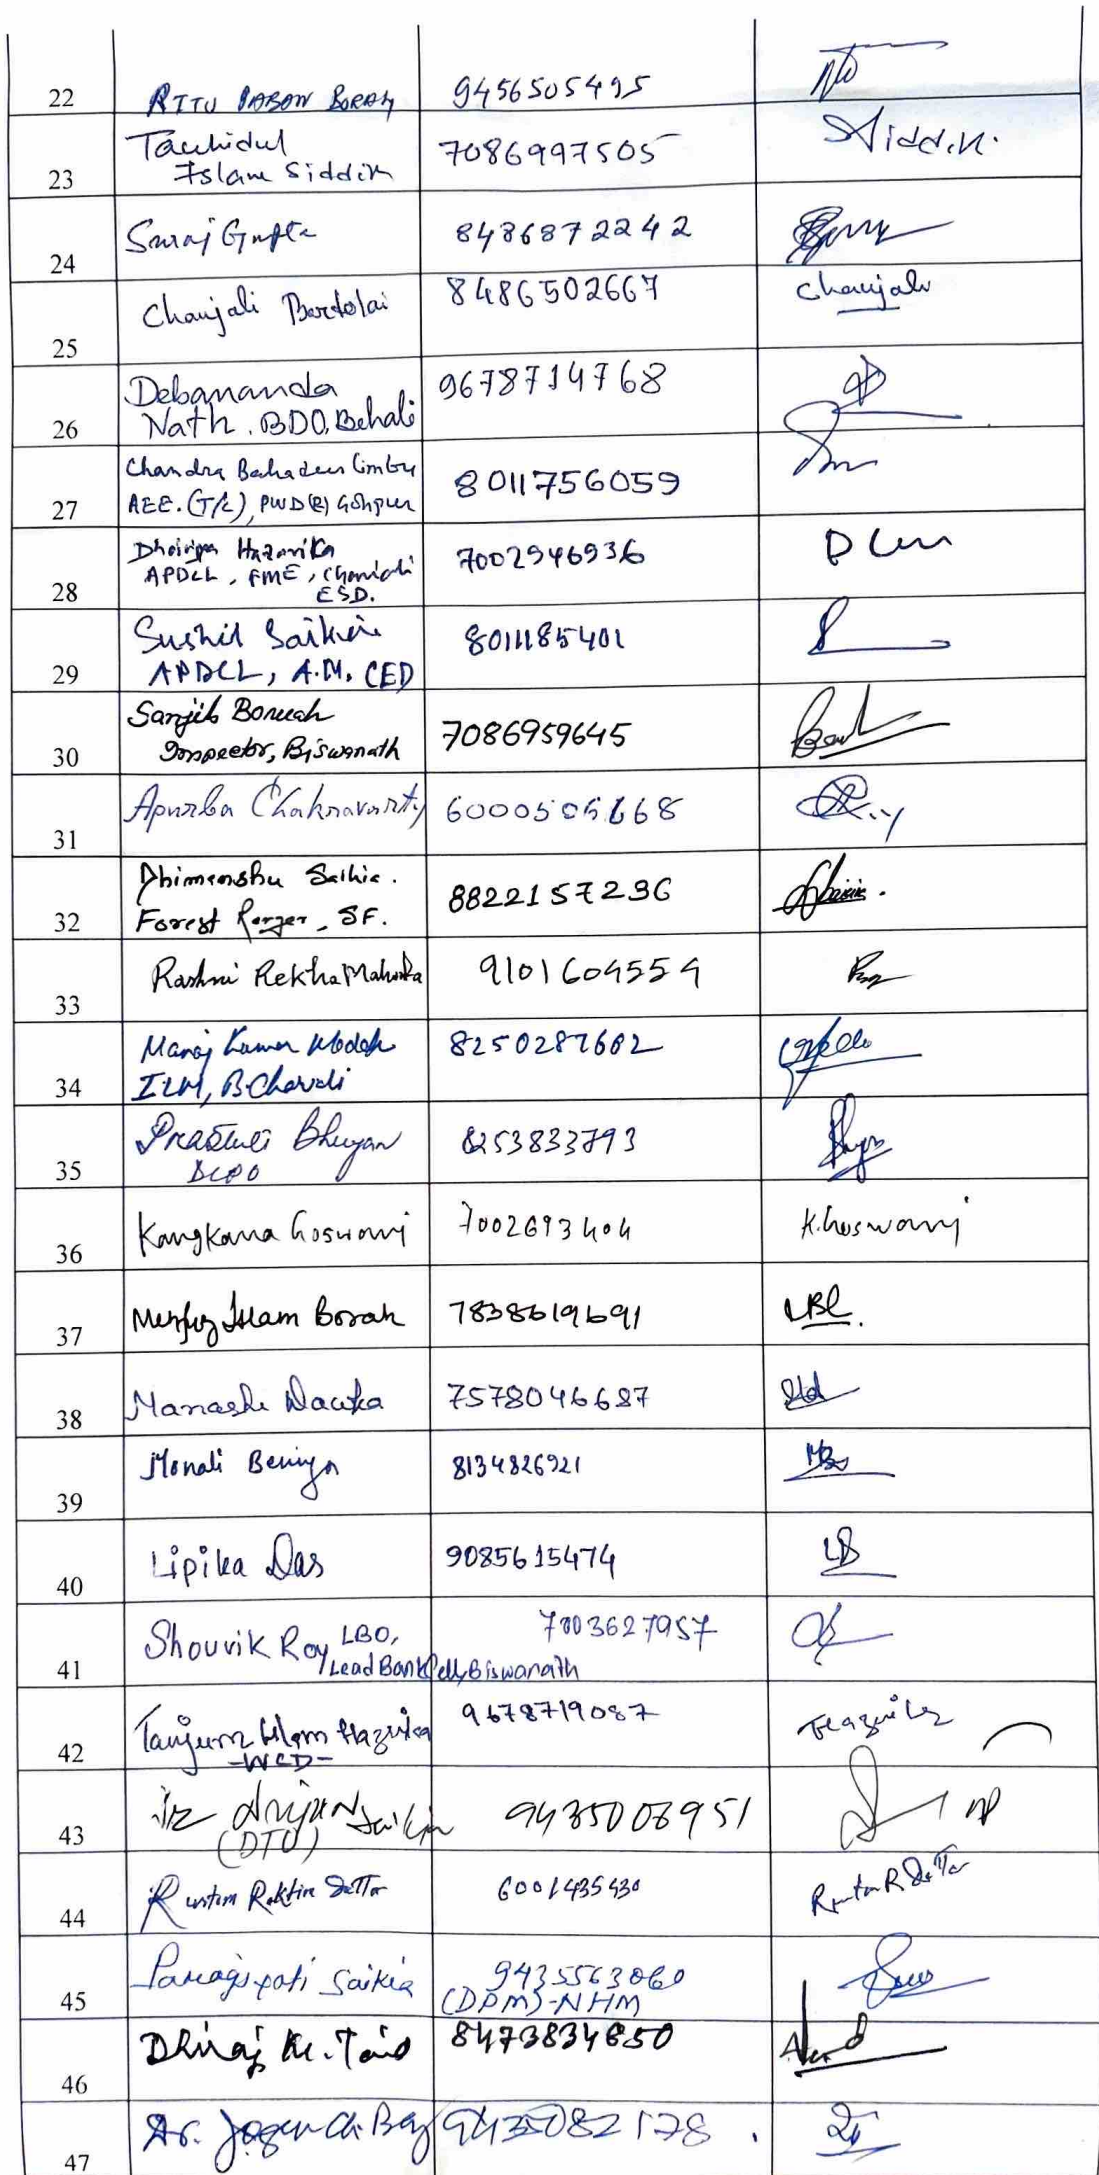 22 RITU PABON BORAH 9456505495
23 Tauhidul
Islam Siddik 7086997505 Siddik.
24 Suraj Gupta 8486872242
25 Chaujali Bordoloi 8486502667 Chaujali
26 Debananda
Nath. BDO, Behali 9678714768
27 Chandra Bahadur Limbu
AEE. (T/C), PWD (R) Gohpur 8011756059
28 Hazarika
APDCL, FME,
ESD. 7002946936
29 Sushil Saikia
APDCL, A.M. CED 8011185401
30 Sanjib Boruah
Inspector, Biswanath 7086959645
31 Apurba Chakravarty 6000505668
32 Dhimanshu Saikia.
Forest Ranger, SF. 8822157236
33 Rashmi Rekha Mahanta 9101604554
34 Manoj Kumar Modak
8250287602
35 Bhuyan
8253833793
36 Kangkana Goswami 7002693404 K. Goswami
37 Islam Borah 7838619691
38 Manashi 7578046687
39 Monali 8134826921
40 Lipika Das 9085615474 LD
41 Shouvik Roy, LBO,
Lead Bank Cell, Biswanath 7003627957
42 Tanjum Islam Hazarika
-WCD- 9678719087
43 Saikia
(DTO) 9435008951
44 Raktim Dutta 6001435430
45 Saikia 9435563060
(DPM)-NHM
46 Dhiraj Kr. Taid 8473834650
47 Dr. Jogen Ch. 9435082178